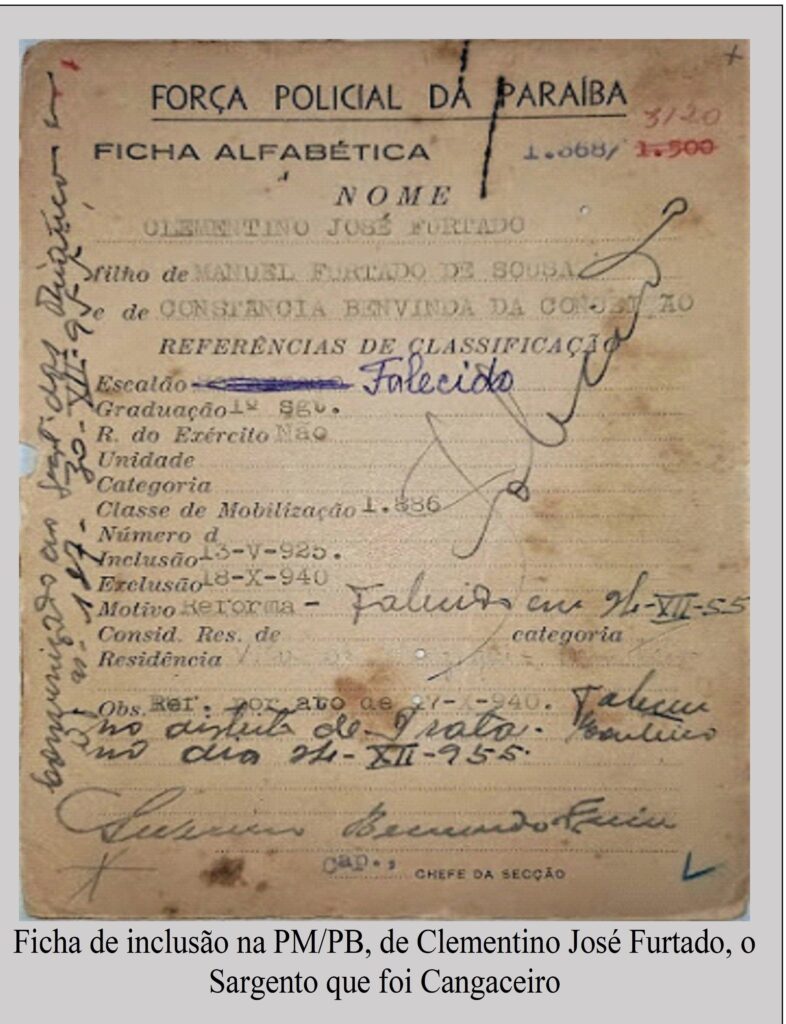 FORÇA POLICIAL DA PARAÍBA
3120
FICHA ALFABÉTICA 1.868/ 1.500
NOME
CLEMENTINO JOSÉ FURTADO
filho de MANUEL FURTADO DE SOUSA
e de CONSTÂNCIA BENVINDA DA CONCEIÇÃO
REFERÊNCIAS DE CLASSIFICAÇÃO
Escalão Falecido
Graduação 1º Sgt.
R. do Exército Não
Unidade
Categoria
Classe de Mobilização 1.886
Número d
Inclusão 13-V-925.
Exclusão 18-X-940
Motivo Reforma - Falecido em 24-XII-55
Consid. Res. de categoria
Residência
Obs. Ref. por ato de 17-X-940. Faleceu
no distrito de Prata-Monteiro
no dia 24-XII-955
Cap., CHEFE DA SECÇÃO
Ficha de inclusão na PM/PB, de Clementino José Furtado, o
Sargento que foi Cangaceiro